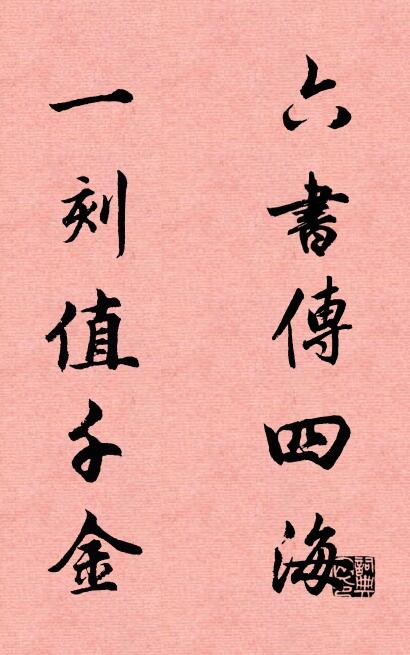 六書傳四海
一刻值千金
詞典